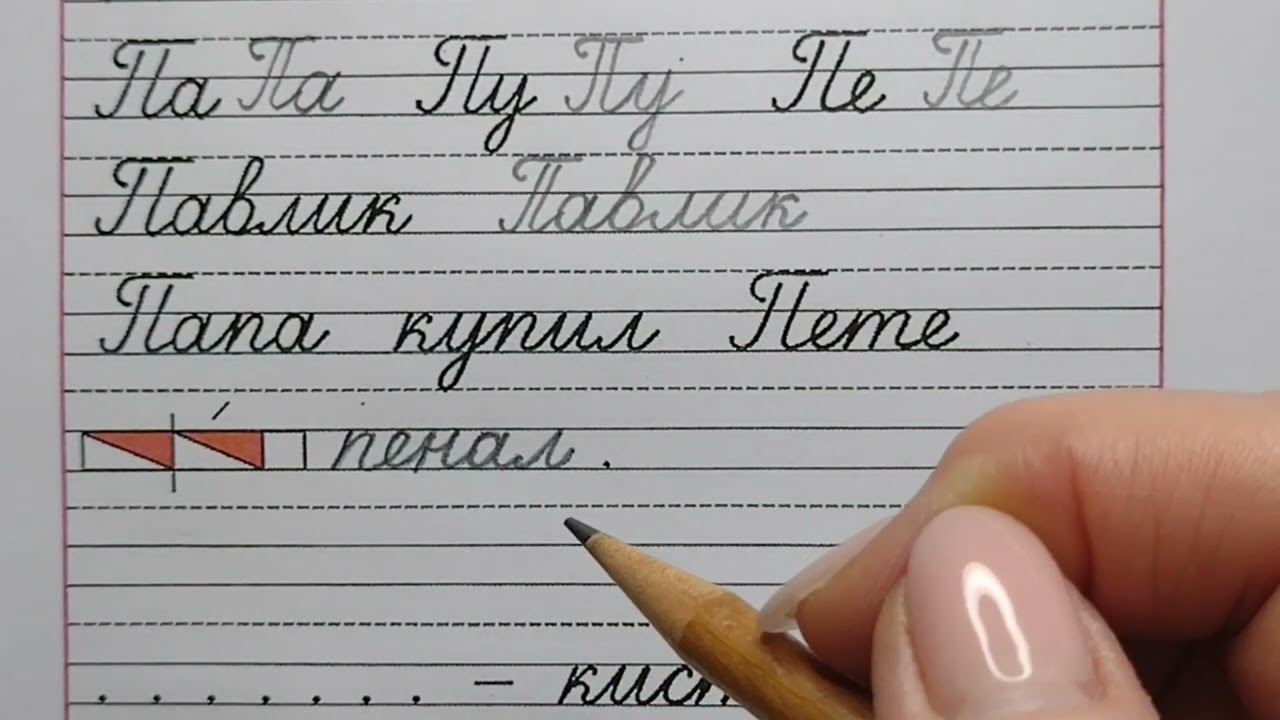 Па Па Пу Пу Пе Пе
Павлик Павлик
Папа купил Пете
пенал.
. . . . . . . –